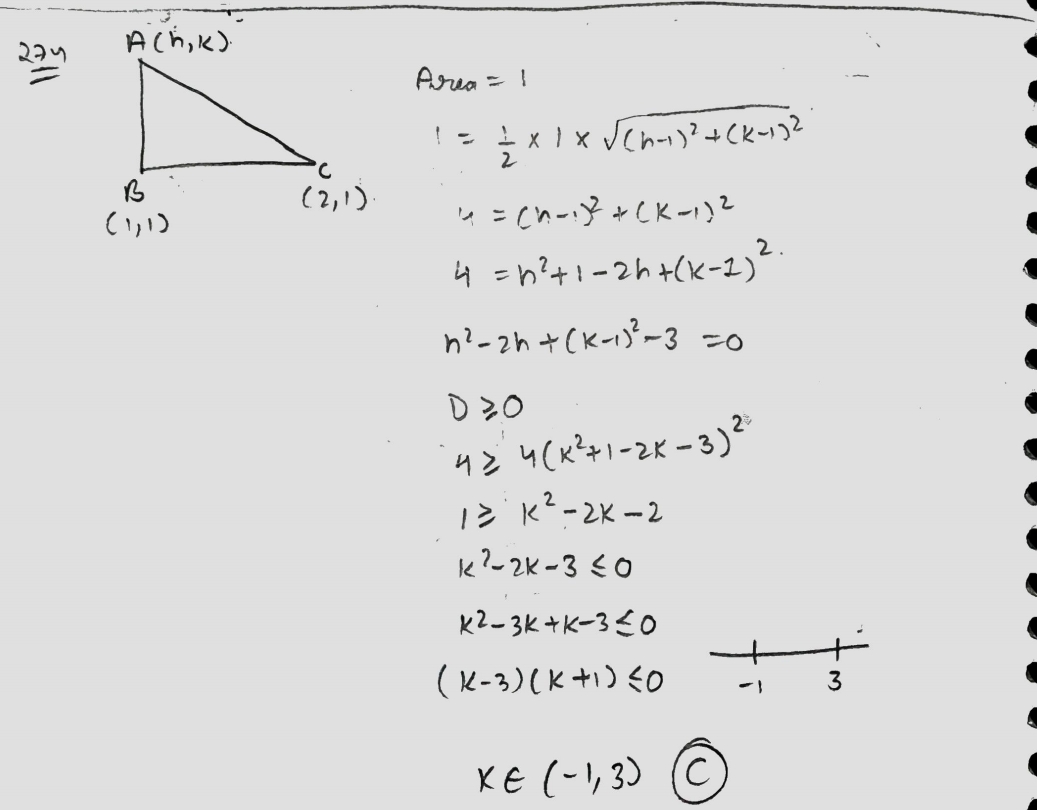 274
A(h,k)
B
(1,1)
C
(2,1)
Area = 1
1 = 1/2 × 1 × √(h-1)²+(k-1)²
4 = (h-1)²+(k-1)²
4 = h²+1-2h+(k-1)².
h²-2h+(k-1)²-3 =0
D ≥ 0
4 ≥ 4(k²+1-2k-3)²
1 ≥ k²-2k-2
k²-2k-3 ≤ 0
k²-3k+k-3 ≤ 0
(k-3)(k+1) ≤ 0
-1 3
k ∈ (-1,3) C